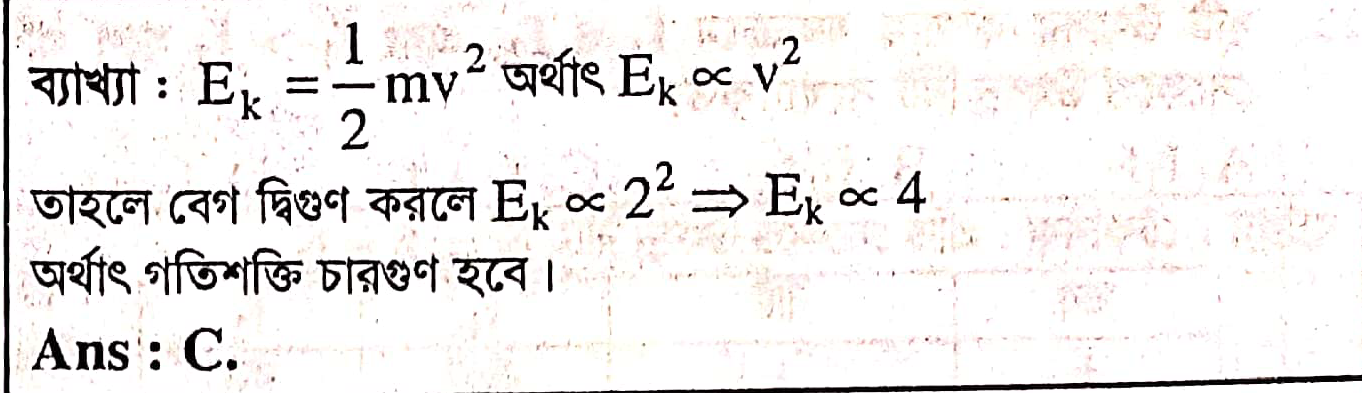 ব্যাখ্যা : Eₖ = 1/2 mv² অর্থাৎ Eₖ ∝ v²
তাহলে বেগ দ্বিগুণ করলে Eₖ ∝ 2² ⇒ Eₖ ∝ 4
অর্থাৎ গতিশক্তি চারগুণ হবে।
Ans : C.